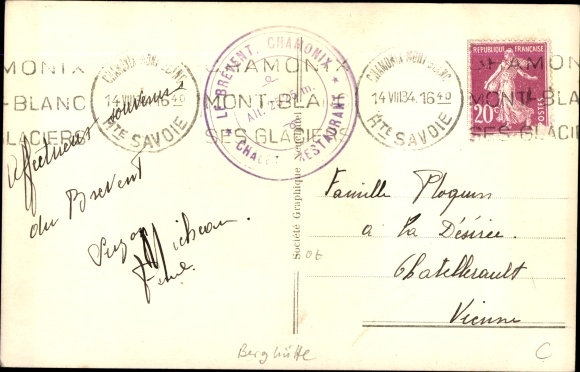 CHAMONIX-MONT-BLANC
14 VIII 34. 16 40
HTE SAVOIE
MONIX
T-BLANC
GLACIERS
CHAMONIX
MONT-BLANC
SES GLACIERS
LE BRÉVENT, CHAMONIX
Alt. 2525 m.
CHALET RESTAURANT
CHAMONIX-MONT-BLANC
14 VIII 34. 16 40
HTE SAVOIE
CHAMON
MONT-BL
SES GLACI
REPUBLIQUE FRANÇAISE
20c
POSTES
Affectueux souvenirs
du Brévent
Suzon Micheau
Société Graphique
Famille Ploquin
a La Désirée.
Chatellerault
Vienne
06
Berghütte
C